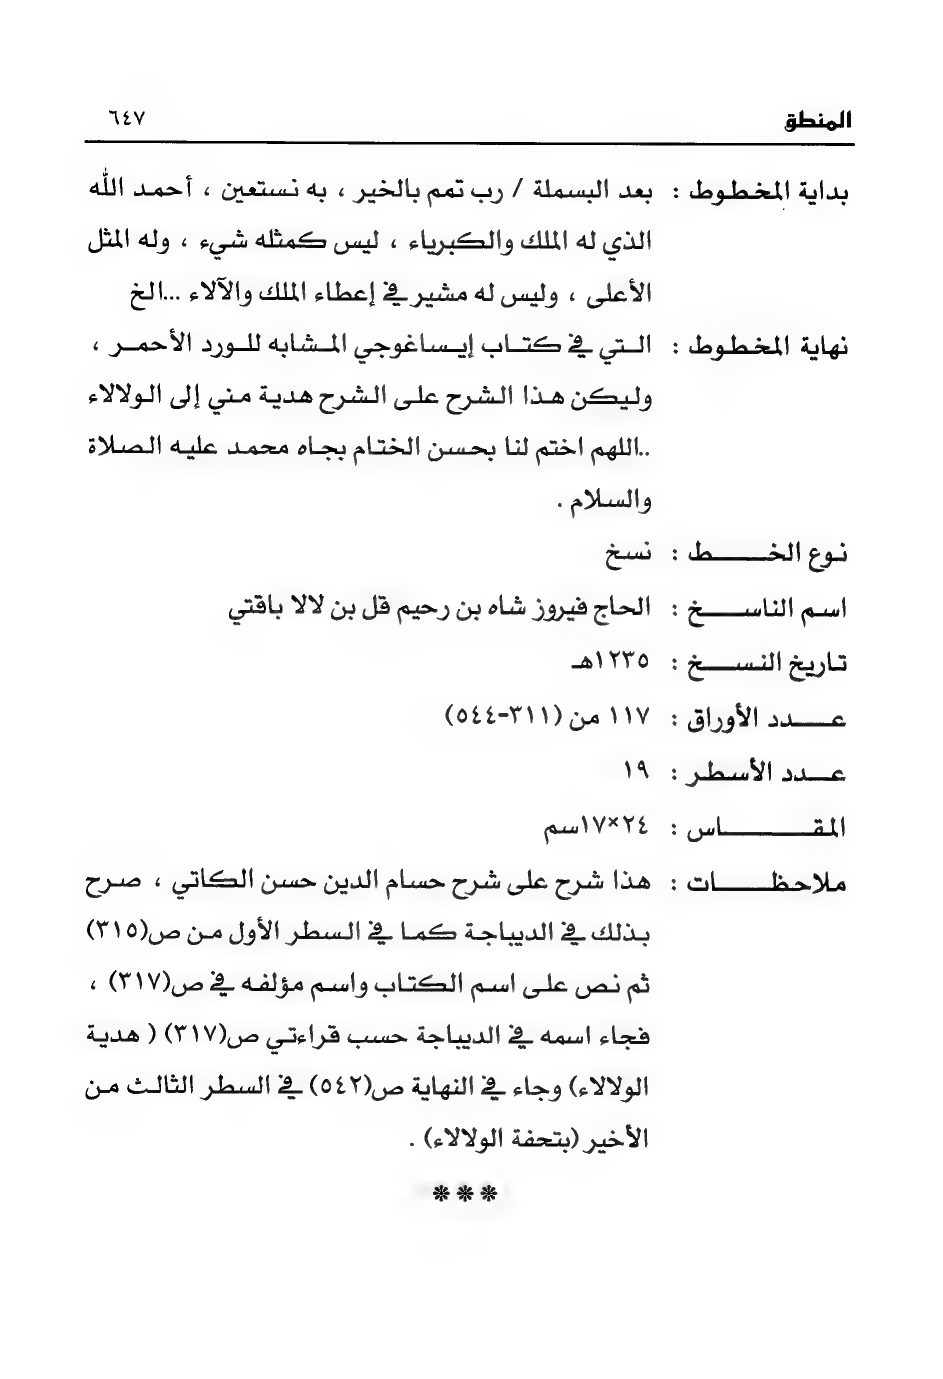 المنطق ٦٤٧
بداية المخطوط : بعد البسملة / رب تمم بالخير ، به نستعين ، أحمد الله
الذي له الملك والكبرياء ، ليس كمثله شيء ، وله المثل
الأعلى ، وليس له مشير في إعطاء الملك والآلاء ...الخ
نهاية المخطوط : التي في كتاب إيساغوجي المشابه للورد الأحمر ،
وليكن هذا الشرح على الشرح هدية مني إلى الولالاء
..اللهم اختم لنا بحسن الختام بجاه محمد عليه الصلاة
والسلام .
نوع الخط : نسخ
اسم الناسخ : الحاج فيروز شاه بن رحيم قل بن لالا باقتي
تاريخ النسخ : ١٢٣٥هـ
عدد الأوراق : ١١٧ من (٣١١-٥٤٤)
عدد الأسطر : ١٩
المقاس : ٢٤×١٧سم
ملاحظات : هذا شرح على شرح حسام الدين حسن الكاتي ، صرح
بذلك في الديباجة كما في السطر الأول من ص(٣١٥)
ثم نص على اسم الكتاب واسم مؤلفه في ص(٣١٧) ،
فجاء اسمه في الديباجة حسب قراءتي ص(٣١٧) ( هدية
الولالاء) وجاء في النهاية ص(٥٤٢) في السطر الثالث من
الأخير (بتحفة الولالاء) .
***